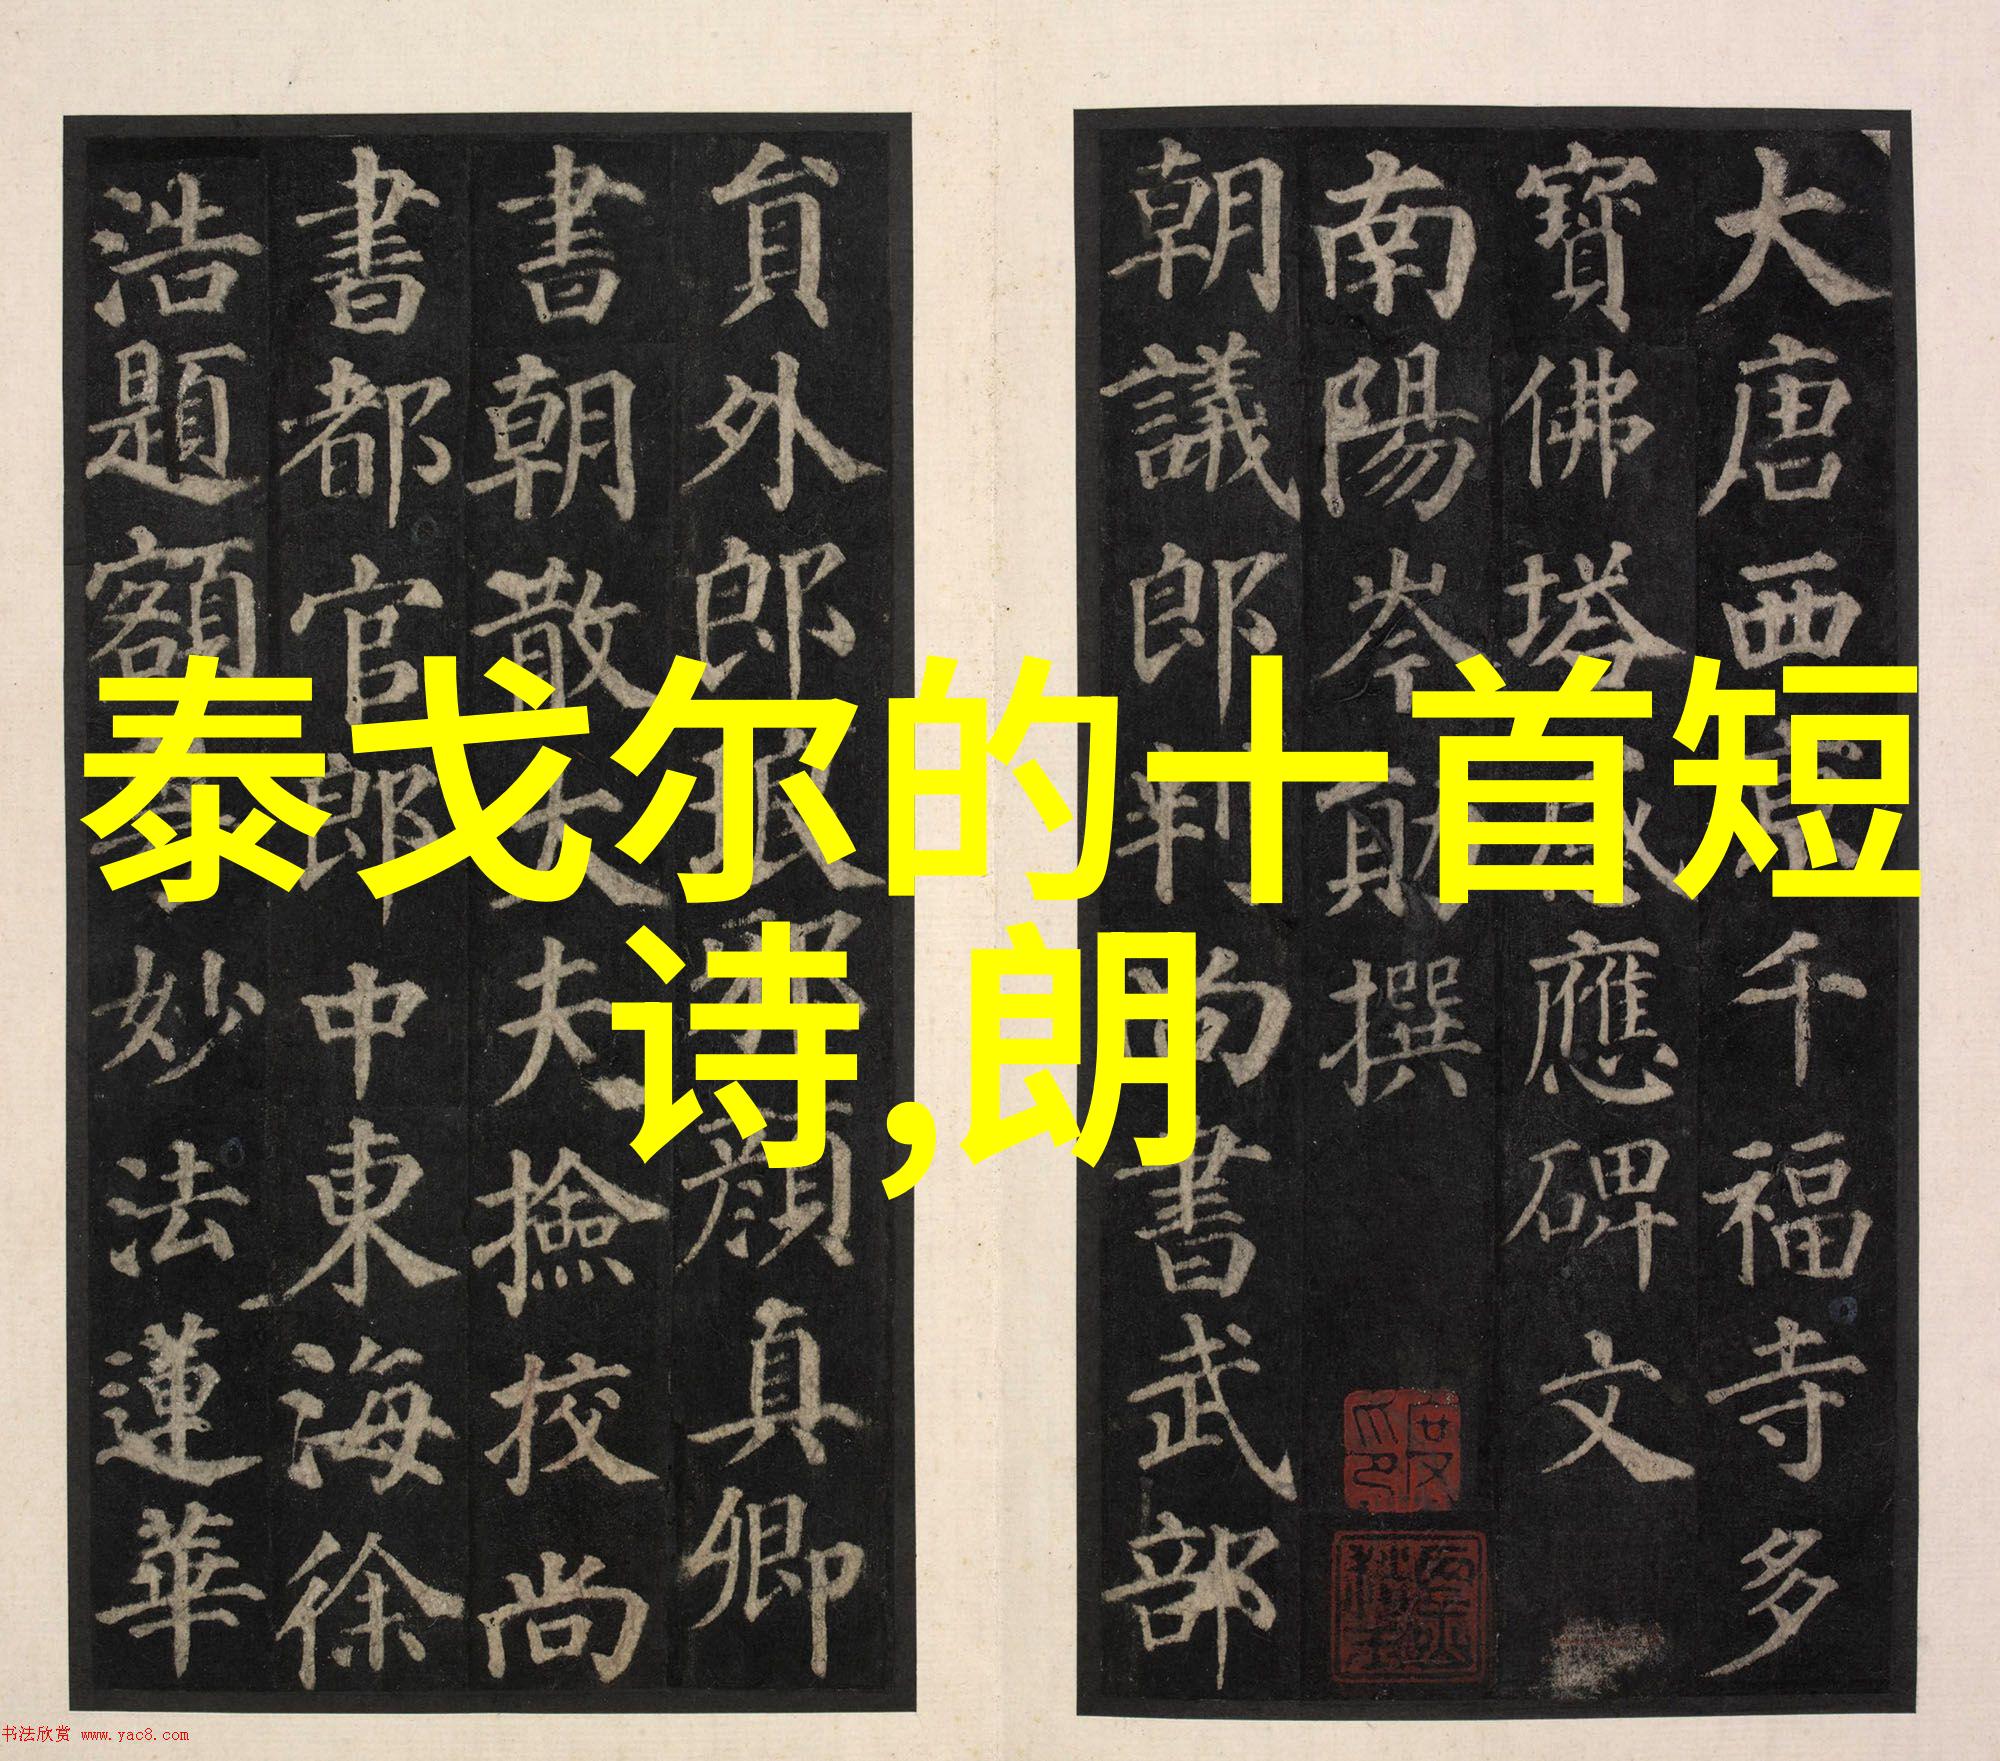 泰戈尔的十首短
诗,朗
大唐西千福寺多
寶佛塔應碑文
南陽岑勛撰
朝議郎判尚書武部
貟外郎琅邪顏真卿
書朝散大夫撿校尚
書都官郎中東海徐
浩題額妙法蓮華
书法欣赏 www.yac8.com